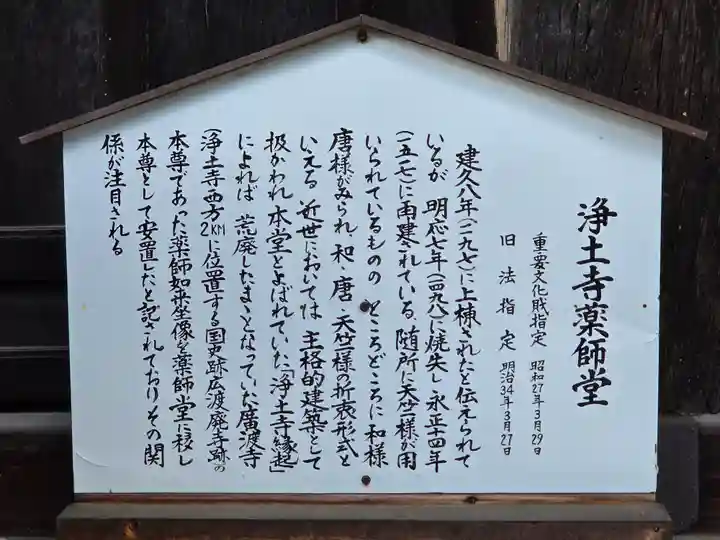 浄土寺薬師堂
重要文化財指定 昭和27年3月29日
旧法指定 明治34年3月27日
建久八年(一一九七)に上棟されたと伝えられて
いるが 明応七年(一四九八)に焼失し永正十四年
(一五一七)に再建されている。随所に天竺様が用
いられているものの ところどころに和様
唐様がみられ、和・唐・天竺様の折衷形式と
いえる 近世においては 主格的建築として
扱かわれ本堂とよばれていた「浄土寺縁起」
によれば 荒廃したまゝとなっていた廣渡寺
(浄土寺西方2KMに位置する国史跡広渡廃寺跡)の
本尊であった薬師如来坐像を薬師堂に移し
本尊として安置したと記されておりその関
係が注目される